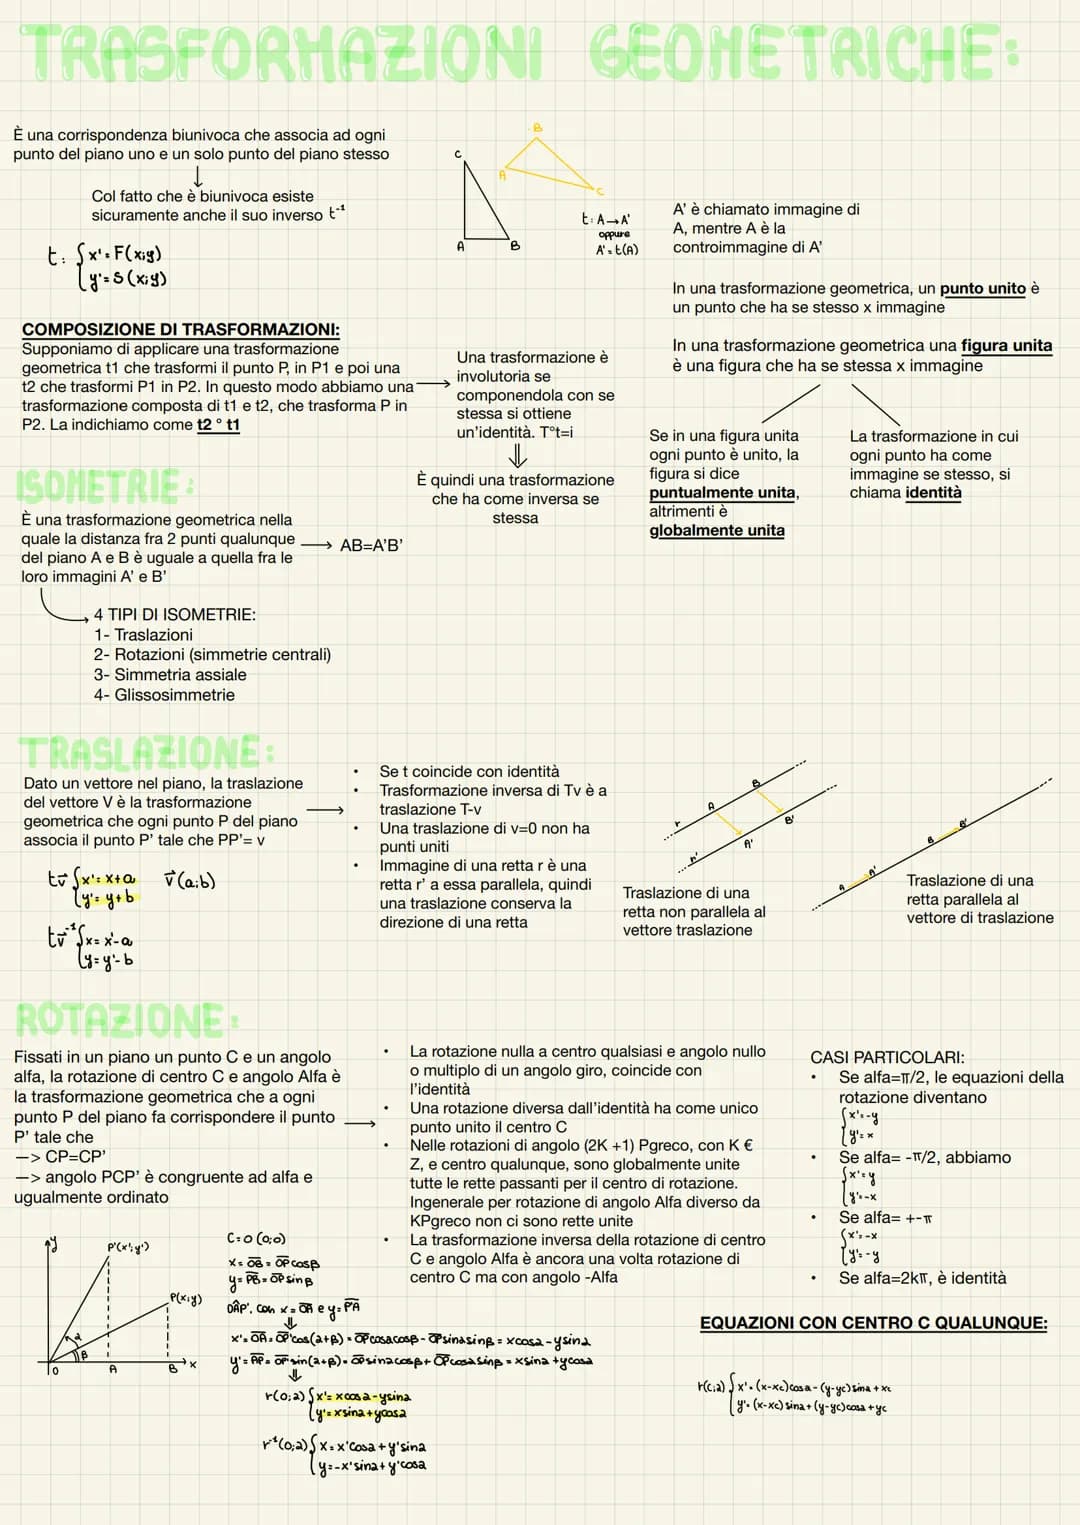 TRASFORMAZIONI GEOMETRICHE:
È una corrispondenza biunivoca che associa ad ogni
punto del piano uno e un solo punto del piano stesso
Col fatto che è biunivoca esiste
sicuramente anche il suo inverso t⁻¹
t: { x'=F(x;y)
y'=S(x;y)
C
A
B
B
A
C
t: A→A'
oppure
A'=t(A)
A' è chiamato immagine di
A, mentre A è la
controimmagine di A'
In una trasformazione geometrica, un punto unito è
un punto che ha se stesso x immagine
In una trasformazione geometrica una figura unita
è una figura che ha se stessa x immagine
Se in una figura unita
ogni punto è unito, la
figura si dice
puntualmente unita,
altrimenti è
globalmente unita
La trasformazione in cui
ogni punto ha come
immagine se stesso, si
chiama identità
COMPOSIZIONE DI TRASFORMAZIONI:
Supponiamo di applicare una trasformazione
geometrica t1 che trasformi il punto P, in P1 e poi una
t2 che trasformi P1 in P2. In questo modo abbiamo una
trasformazione composta di t1 e t2, che trasforma P in
P2. La indichiamo come t2 ° t1
Una trasformazione è
involutoria se
componendola con se
stessa si ottiene
un'identità. T°t=i
È quindi una trasformazione
che ha come inversa se
stessa
ISOMETRIE:
È una trasformazione geometrica nella
quale la distanza fra 2 punti qualunque
del piano A e B è uguale a quella fra le
loro immagini A' e B'
AB=A'B'
4 TIPI DI ISOMETRIE:
1- Traslazioni
2- Rotazioni (simmetrie centrali)
3- Simmetria assiale
4- Glissosimmetrie
TRASLAZIONE:
Dato un vettore nel piano, la traslazione
del vettore V è la trasformazione
geometrica che ogni punto P del piano
associa il punto P' tale che PP'= v
tv⃗ { x'=x+a
y'=y+b
v⃗(a;b)
tv⃗⁻¹ { x=x'-a
y=y'-b
• Se t coincide con identità
• Trasformazione inversa di Tv è a
traslazione T-v
• Una traslazione di v=0 non ha
punti uniti
• Immagine di una retta r è una
retta r' a essa parallela, quindi
una traslazione conserva la
direzione di una retta
r
A
B
r'
A'
B'
Traslazione di una
retta non parallela al
vettore traslazione
A
A'
B
B'
Traslazione di una
retta parallela al
vettore di traslazione
ROTAZIONE:
Fissati in un piano un punto C e un angolo
alfa, la rotazione di centro C e angolo Alfa è
la trasformazione geometrica che a ogni
punto P del piano fa corrispondere il punto
P' tale che
—> CP=CP'
—> angolo PCP' è congruente ad alfa e
ugualmente ordinato
• La rotazione nulla a centro qualsiasi e angolo nullo
o multiplo di un angolo giro, coincide con
l'identità
• Una rotazione diversa dall'identità ha come unico
punto unito il centro C
• Nelle rotazioni di angolo (2K +1) Pgreco, con K €
Z, e centro qualunque, sono globalmente unite
tutte le rette passanti per il centro di rotazione.
Ingenerale per rotazione di angolo Alfa diverso da
KPgreco non ci sono rette unite
• La trasformazione inversa della rotazione di centro
C e angolo Alfa è ancora una volta rotazione di
centro C ma con angolo -Alfa
CASI PARTICOLARI:
• Se alfa=π/2, le equazioni della
rotazione diventano
{ x'=-y
y'=x
• Se alfa= -π/2, abbiamo
{ x'=y
y'=-x
• Se alfa= +-π
{ x'=-x
y'=-y
• Se alfa=2kπ, è identità
EQUAZIONI CON CENTRO C QUALUNQUE:
r(C;α) { x'=(x-xc)cosα-(y-yc)sinα+xc
y'=(x-xc)sinα+(y-yc)cosα+yc
y
P'(x';y')
P(x;y)
α
β
O
A
B
x
C=O (0;0)
x=OB=OPcosβ
y=PB=OPsinβ
OÂP', con x=OA e y=P'A
x'=OA=OP'cos(α+β)=OPcosαcosβ-OPsinαsinβ=xcosα-ysinα
y'=AP=OP'sin(α+β)=OPsinαcosβ+OPcosαsinβ=xsinα+ycosα
r(O;α) { x'=xcosα-ysinα
y'=xsinα+ycosα
r⁻¹(O;α) { x=x'cosα+y'sinα
y=-x'sinα+y'cosα